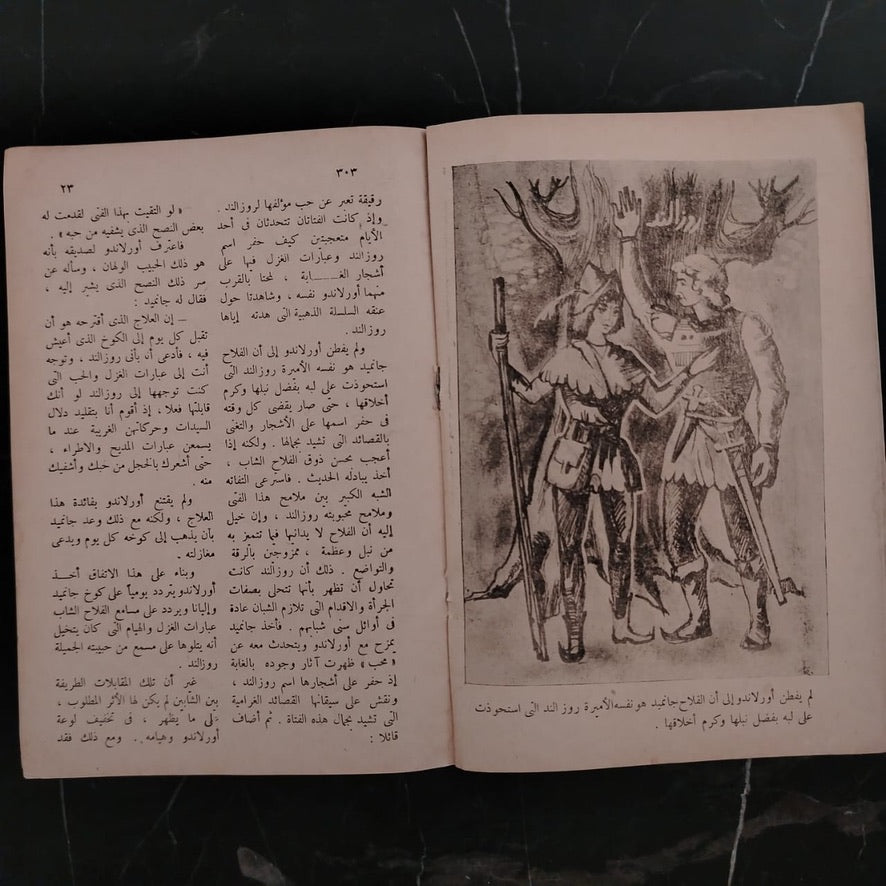 روزالند
لم يفطن أورلاندو إلى أن الفلاح جانميد هو نفسه الأميرة روزالند التى استحوذت
على لبه بفضل نبلها وكرم أخلاقها .
٣٠٣
رقيقة تعبر عن حب مؤلفها لروزالند .
وإذ كانت الفتاتان تتحدثان فى أحد
الأيام متعجبتين كيف حفر اسم
روزالند وعبارات الغزل فيها على
أشجار الغـــابة ، لمحتا بالقرب
منهما أورلاندو نفسه ، وشاهدتا حول
عنقه السلسلة الذهبية التى هدته إياها
روزالند .
ولم يفطن أورلاندو إلى أن الفلاح
جانميد هو نفسه الأميرة روزالند التى
استحوذت على لبه بفضل نبلها وكرم
أخلاقها ، حتى صار يقضى كل وقته
فى حفر اسمها على الأشجار والتغنى
بالقصائد التى تشيد بجمالها . ولكنه إذا
أعجب بحسن ذوق الفلاح الشاب ،
أخذ يبادله الحديث . فاسترعى التفاته
الشبه الكبير بين ملامح هذا الفتى
وملامح محبوبته روزالند ، وإن خيل
إليه أن الفلاح لا يدانيها فيما تتميز به
من نبل وعظمة ، ممزوجين بالرقة
والتواضع . ذلك أن روزالند كانت
تحاول أن تظهر بأنها تتحلى بصفات
الجرأة والاقدام التى تلازم الشبان عادة
فى أوائل سنى شبابهم . فأخذ جانميد
يمزح مع أورلاندو ويتحدث معه عن
« محب » ظهرت آثار وجوده بالغابة
إذ حفر على أشجارها اسم روزالند ،
ونقش على سيقانها القصائد الغرامية
التى تشيد بجمال هذه الفتاة . ثم أضاف
قائلا :
٢٣
« لو التقيت بهذا الفتى لقدمت له
بعض النصح الذى يشفيه من حبه » .
فاعترف أورلاندو لصديقه بأنه
هو ذلك الحبيب الولهان ، وسأله عن
سر ذلك النصح الذى يشير إليه ،
فقال له جانميد :
ــ إن العلاج الذى أقترحه هو أن
تقبل كل يوم إلى الكوخ الذى أعيش
فيه ، فأدعى أنا بأنى روزالند ، وتوجه
أنت إلى عبارات الغزل والحب التى
كنت توجهها إلى روزالند لو أنك
قابلتها فعلا ، إذ أقوم أنا بتقليد دلال
السيدات وحركاتهن الغريبة عند ما
يسمعن عبارات المديح والاطراء ،
حتى أشعرك بالخجل من حبك وأشفيك
منه .
ولم يقتنع أورلاندو بفائدة هذا
العلاج ، ولكنه مع ذلك وعد جانميد
بأن يذهب إلى كوخه كل يوم ويدعى
مغازلته .
وبناء على هذا الاتفاق أخـــذ
أورلاندو يتردد يومياً على كوخ جانميد
وإليانا ويردد على مسامع الفلاح الشاب
عبارات الغزل والهيام التى كان يتخيل
أنه يتلوها على مسمع من حبيبته الجميلة
روزالند .
غير أن تلك المقابلات الطريفة
بين الشابين لم يكن لها الأثر المطلوب ،
على ما يظهر ، فى تخفيف لوعة
أورلاندو وهيامه . ومع ذلك فقد